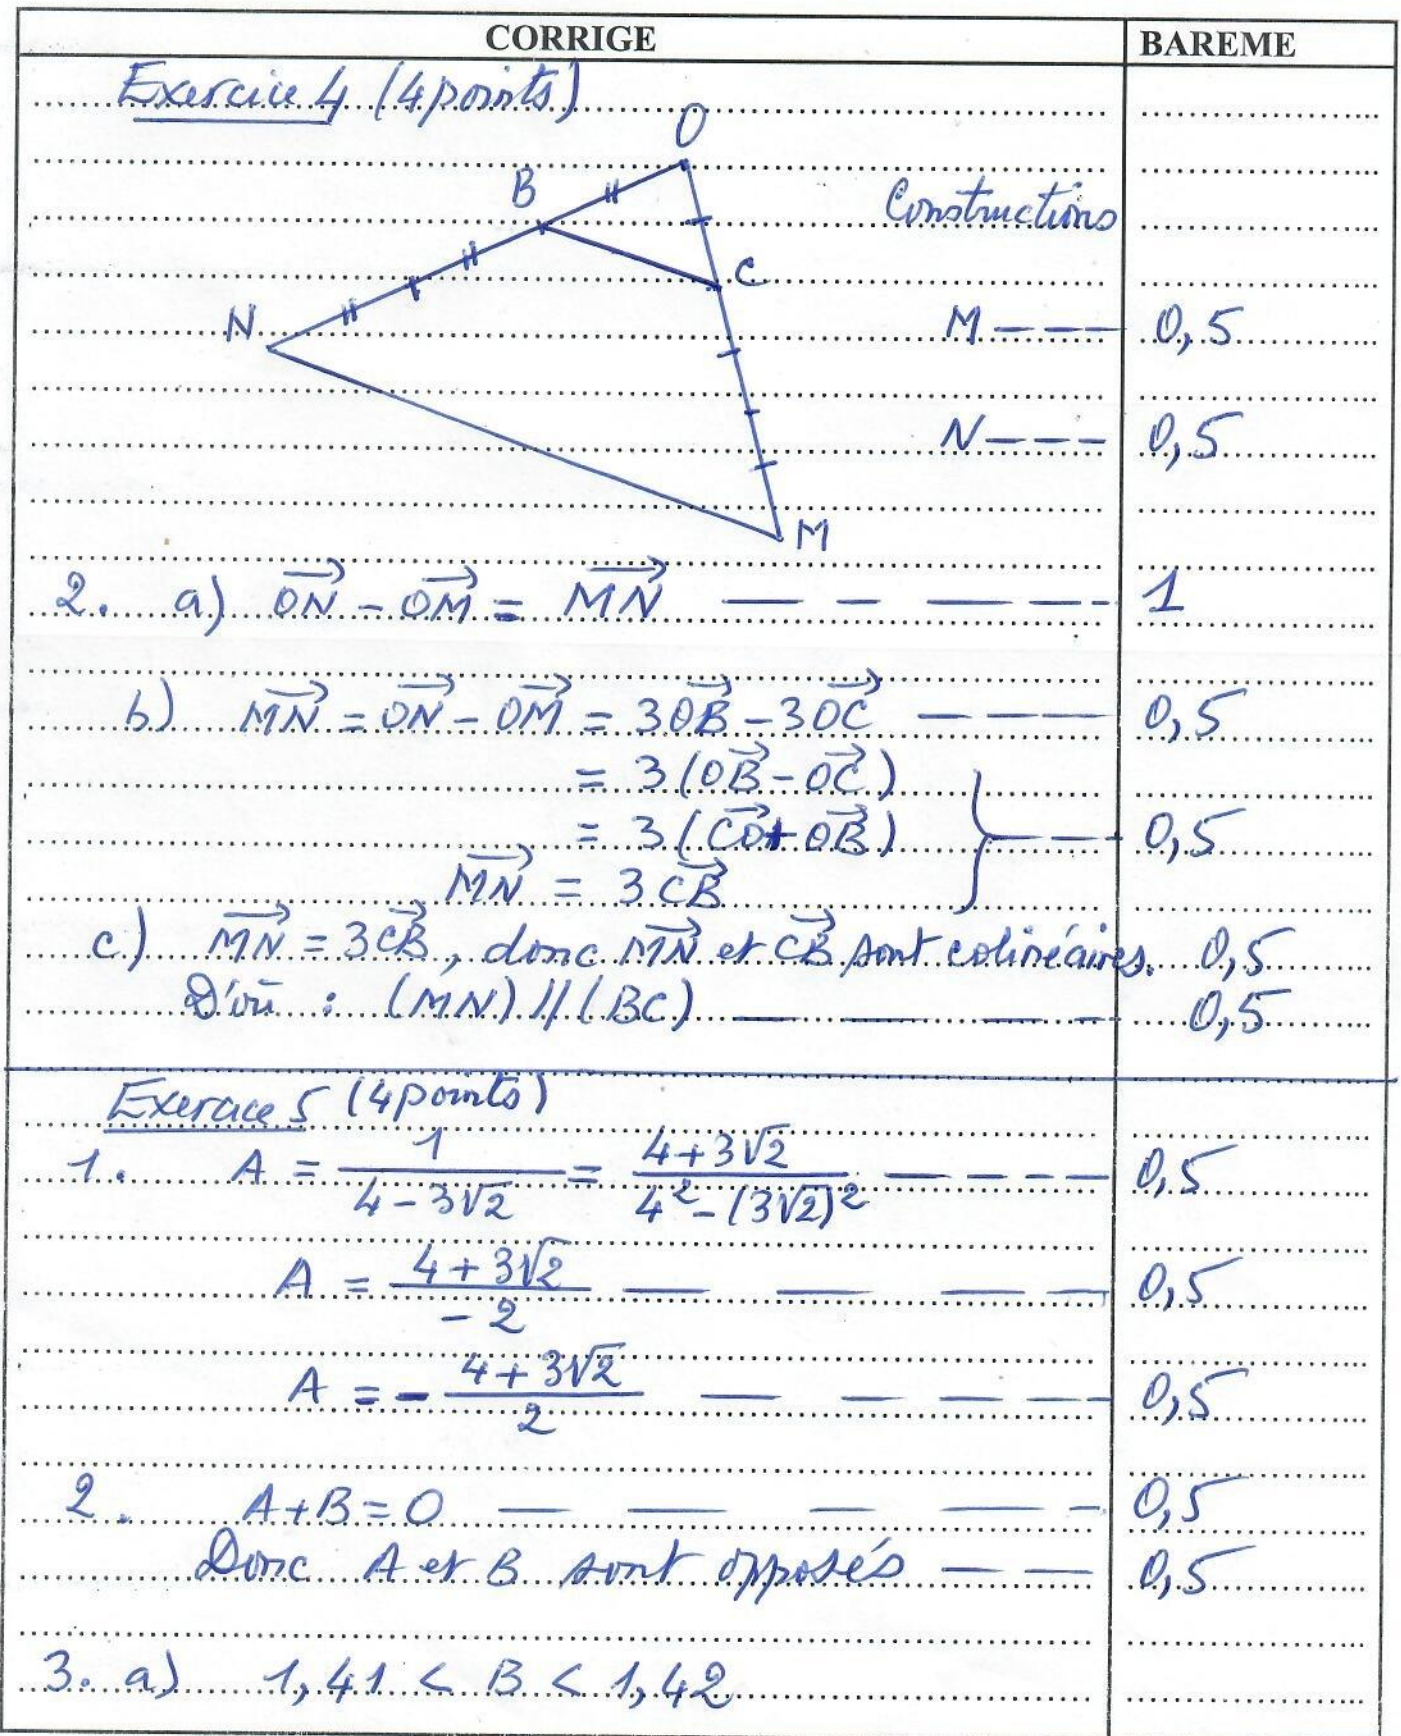 CORRIGE BAREME
Exercice 4 (4 points)
O
B
Constructions
C
N M 0,5
N 0,5
M
2. a) ON - OM = MN 1
b) MN = ON - OM = 3OB - 3OC 0,5
= 3(OB - OC)
= 3(CO + OB) 0,5
MN = 3CB
c) MN = 3CB, donc MN et CB sont colinéaires. 0,5
D'où : (MN) // (BC) 0,5
Exercice 5 (4 points)
1. A = 1/(4 - 3√2) = (4 + 3√2)/(4² - (3√2)²) 0,5
A = (4 + 3√2)/(-2) 0,5
A = - (4 + 3√2)/2 0,5
2. A + B = 0 0,5
Donc A et B sont opposés 0,5
3. a) 1,41 < B < 1,42